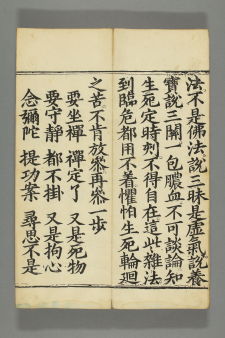 法不是佛法說三昧是虛氣說養
寶說三關一包膿血不可談論知
生死定時刻不得自在這此雜法
到臨危都用不着懼怕生死輪迴
之苦不肯放參再參一步
要坐禪 禪定了 又是死物
要守靜 都不掛 又是拘心
念彌陀 提功案 尋思不是